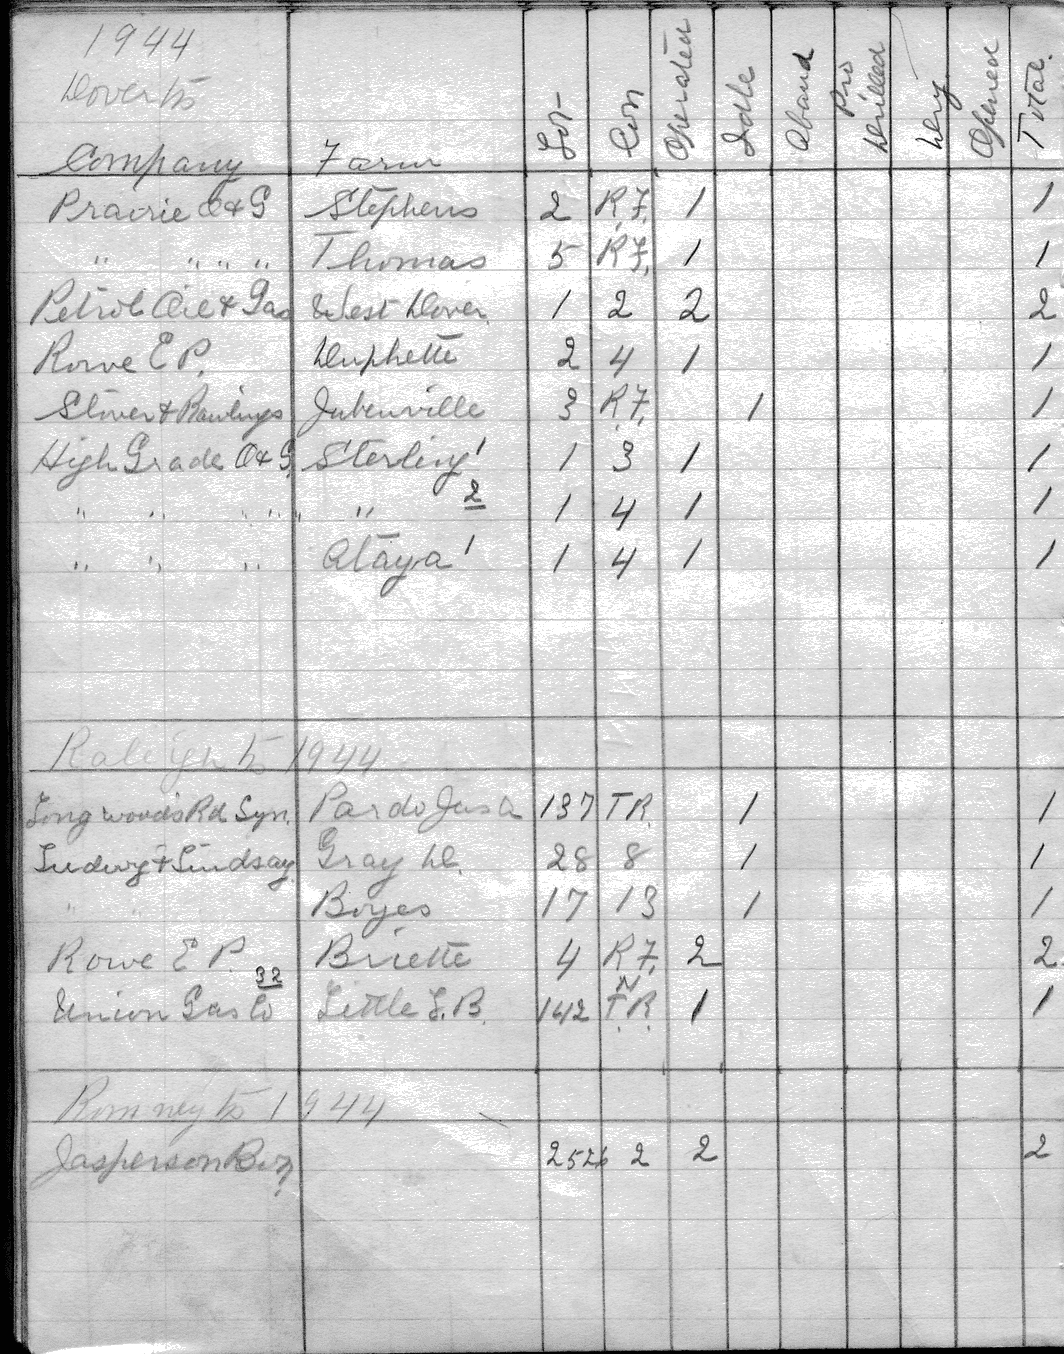 1944
Dover tp
Company Farm Lot Con Operated Idle Aband Pro Drilled Dry Opened Total.
Prairie O & G Stephens 2 R.F. 1 1
" " " " Thomas 5 R.F. 1 1
Petrol Oil & Gas West Dover 1 2 2 2
Rowe E P. Duphette 2 4 1 1
Stover & Rawlings Jubenville 3 R.F. 1 1
High Grade O & G Sterling 1 1 3 1 1
" " " " " 2 1 4 1 1
" " " Ataya 1 1 4 1 1
Raleigh tp 1944
Longwoods Rd Syn. Pardo Jas A 137 T.R. 1 1
Ludwig & Lindsay Gray D. 28 8 1 1
" " Boyes 17 13 1 1
Rowe E P. Briette 4 R.F. 2 2
Union Gas Co 32 Little L.B. 142 N T.R. 1 1
Romney tp 1944
Jasperson Bros 25 26 2 2 2